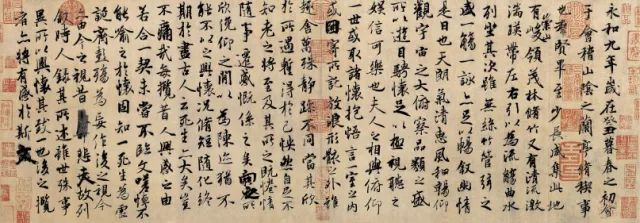 永和九年歲在癸丑暮春之初會
于會稽山陰之蘭亭脩稧事
也群賢畢至少長咸集此地
有崇山峻領茂林脩竹又有清流激
湍暎帶左右引以為流觴曲水
列坐其次雖無絲竹管弦之
盛一觴一詠亦足以暢叙幽情
是日也天朗氣清惠風和暢仰
觀宇宙之大俯察品類之盛
所以遊目騁懷足以極視聽之
娛信可樂也夫人之相與俯仰
一世或取諸懷抱悟言一室之內
或因寄所託放浪形骸之外雖
趣舍萬殊靜躁不同當其欣
於所遇蹔得於己怏然自足不
知老之將至及其所之既惓情
隨事遷感慨係之矣向之所
欣俛仰之閒以為陳迹猶不
能不以之興懷況脩短隨化終
期於盡古人云死生亦大矣豈
不痛哉每攬昔人興感之由
若合一契未嘗不臨文嗟悼不
能喻之於懷固知一死生為虛
誕齊彭殤為妄作後之視今
亦由今之視昔悲夫故列
叙時人錄其所述雖世殊事
異所以興懷其致一也後之攬
者亦將有感於斯文